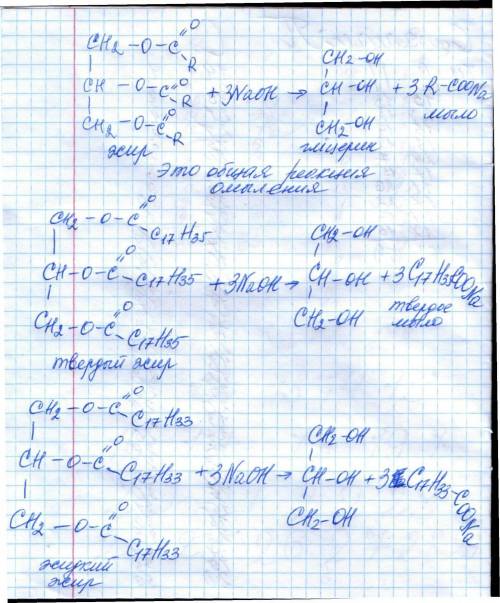 CH2 - O - C =O - R
CH - O - C =O - R + 3NaOH → CH2-OH CH-OH CH2-OH + 3 R-COONa
CH2 - O - C =O - R
жир глицерин мыло
Это общая реакция
омыления
CH2 - O - C =O - C17H35
CH - O - C =O - C17H35 + 3NaOH → CH2-OH CH-OH CH2-OH + 3C17H35COONa
CH2 - O - C =O - C17H35
твердый жир твердое
мыло
CH2 - O - C =O - C17H33
CH - O - C =O - C17H33 + 3NaOH → CH2-OH CH-OH CH2-OH + 3 C17H33-COONa
CH2 - O - C =O - C17H33
жидкий
жир